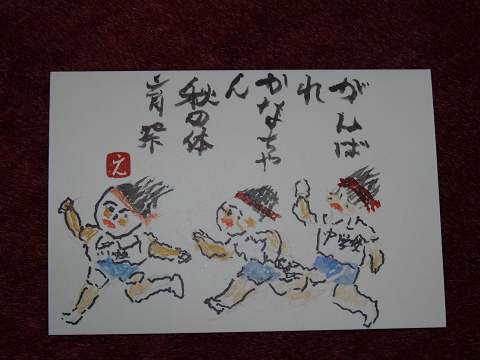 がんば
れ
かなちゃ
ん
秋の体
育祭
え
中学校